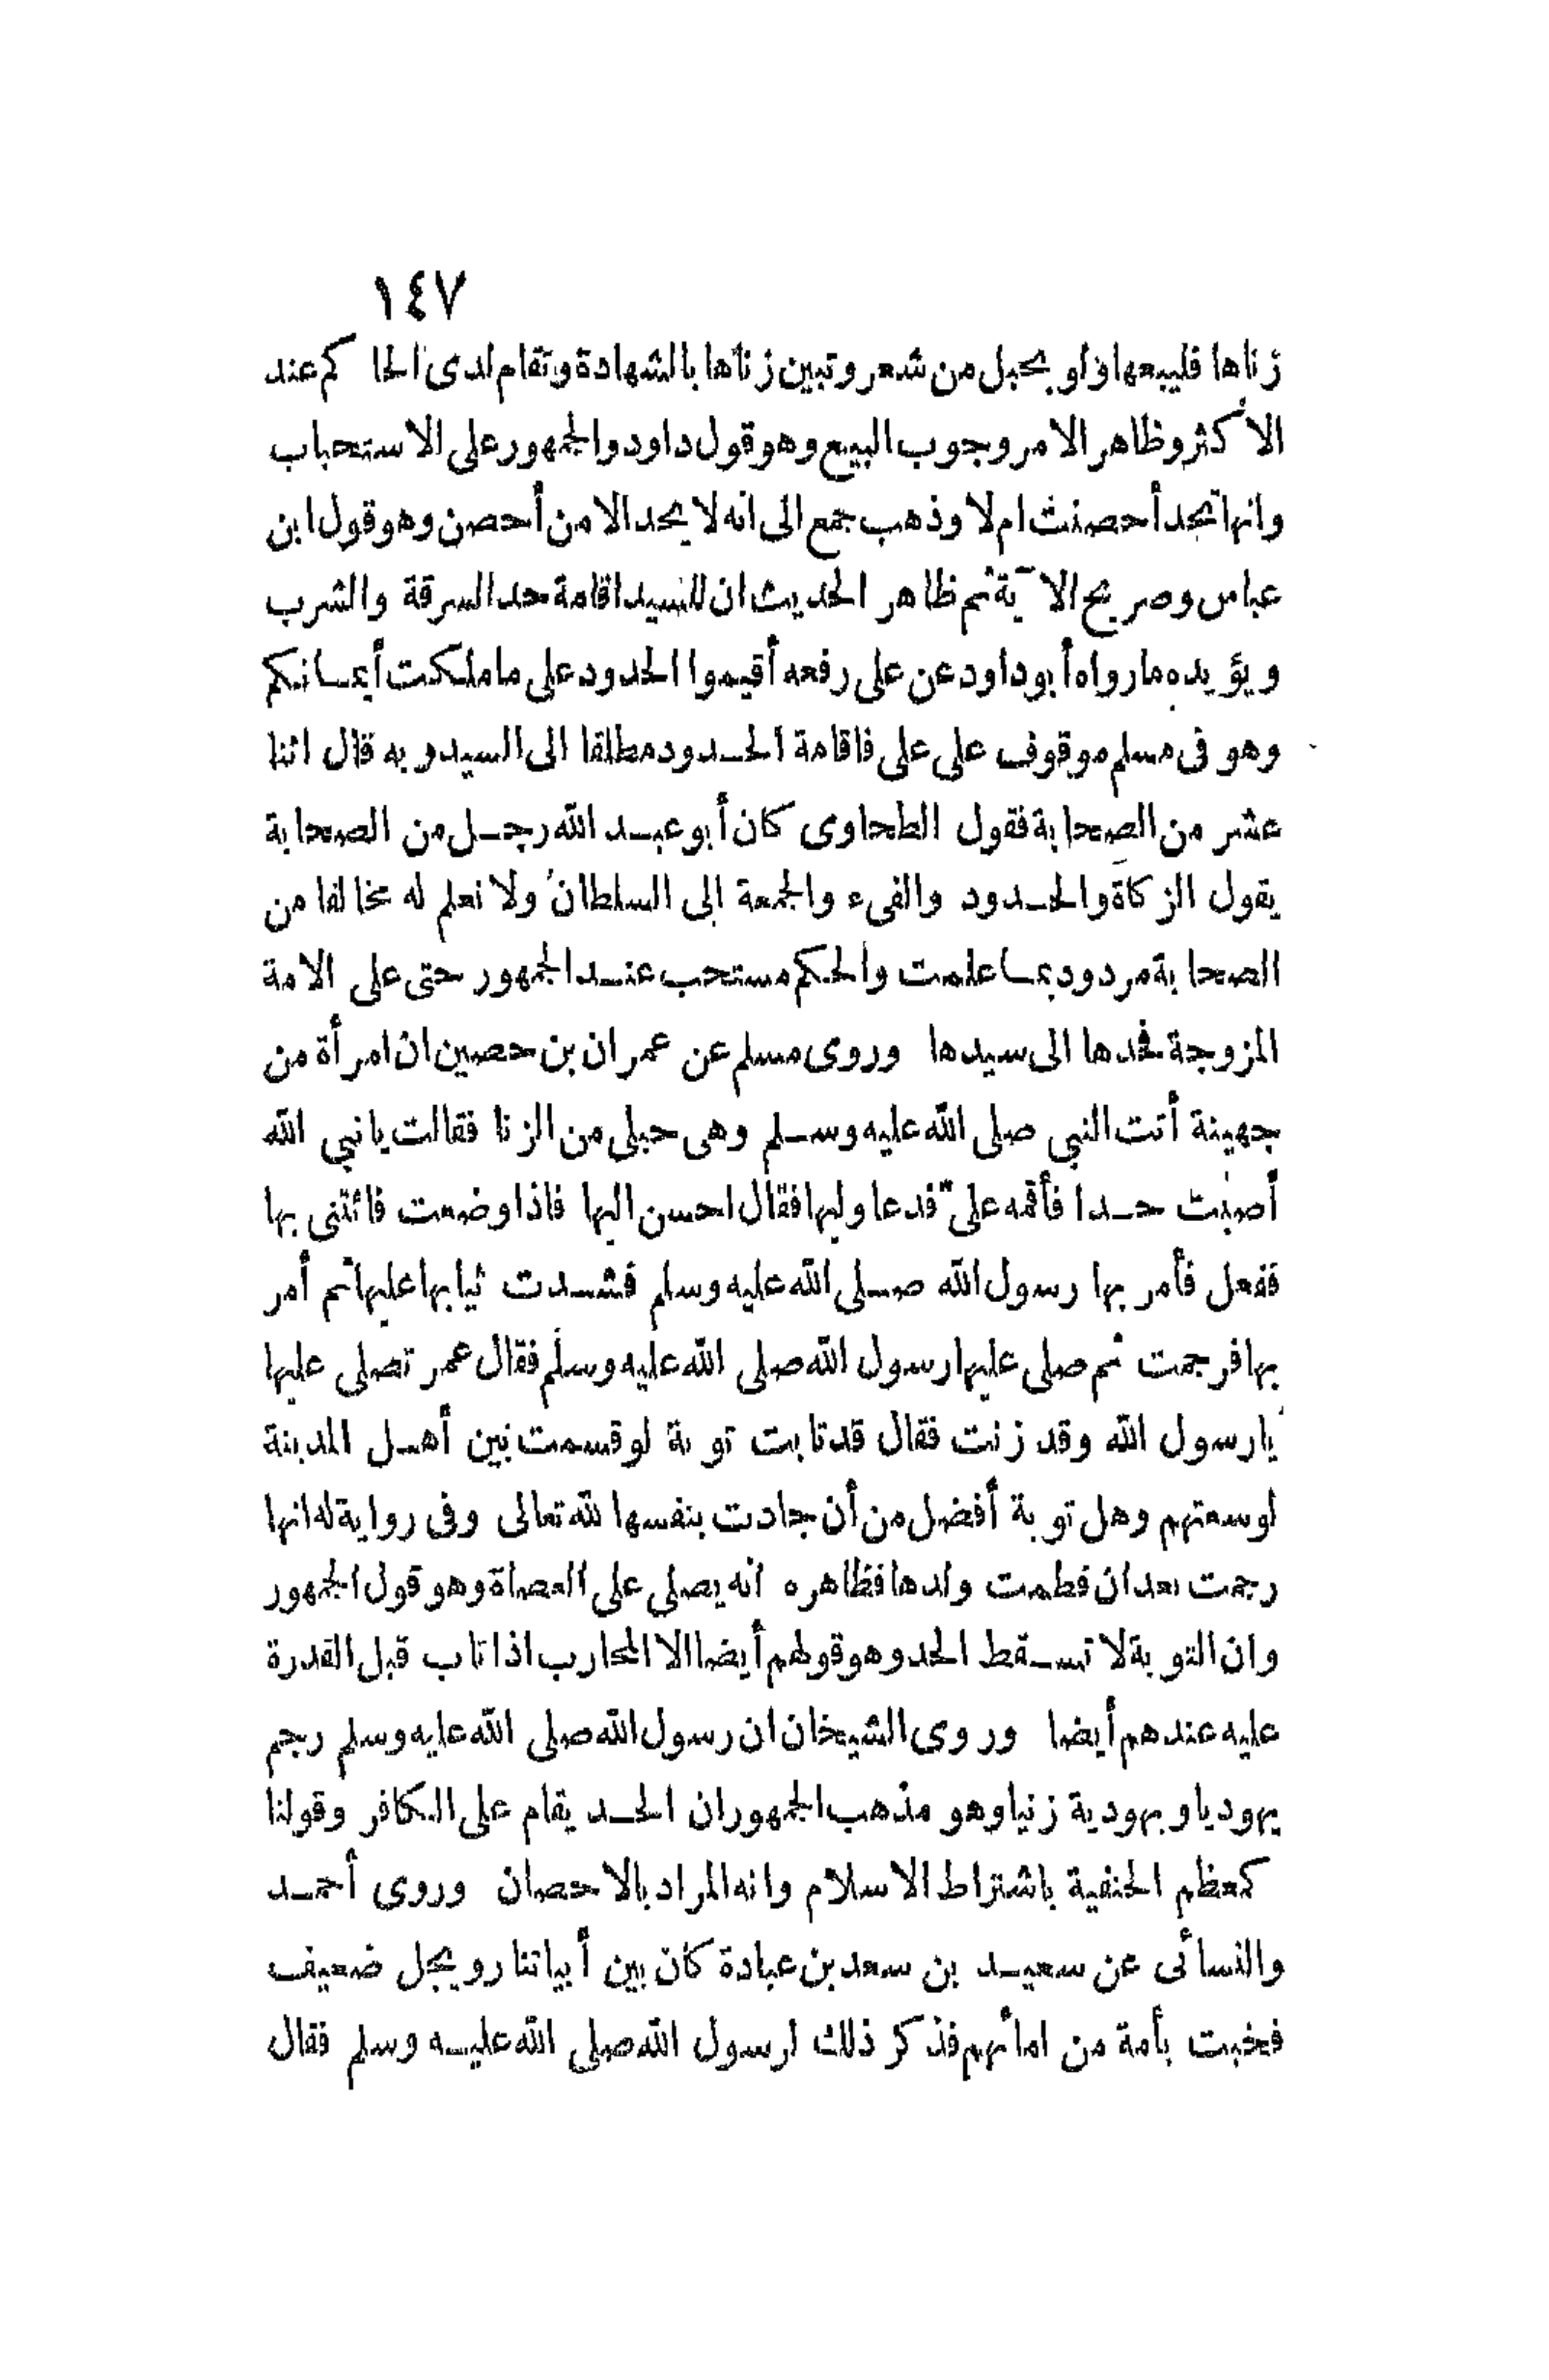 ١٤٧
زناها فليبعها ولو بحبل من شعر وتبين زناها بالشهادة وتقام لدى الحاكم عند
الأكثر وظاهر الامر وجوب البيع وهو قول داود والجمهور على الاستحباب
وانها تجد أحصنت ام لا وذهب جمع الى انه لا يحد الا من أحصن وهو قول ابن
عباس وصريح الآية ثم ظاهر الحديث ان للسيد اقامة حد السرقة والشرب
ويؤيده ما رواه أبو داود عن على رفعه أقيموا الحدود على ما ملكت أيمانكم
وهو فى مسلم موقوف على على فاقامة الحدود مطلقا الى السيد وبه قال اثنا
عشر من الصحابة فقول الطحاوى كان أبو عبد الله رجل من الصحابة
يقول الزكاة والحدود والفىء والجمعة إلى السلطان ولا نعلم له مخالفا من
الصحابة مردود بما علمت والحكم مستحب عند الجمهور حتى على الامة
المزوجة فحدها الى سيدها وروى مسلم عن عمران بن حصين ان امرأة من
جهينة أتت النبي صلى الله عليه وسلم وهى حبلى من الزنا فقالت يا نبي الله
أصبت حدا فأقمه علىّ فدعا وليها فقال احسن اليها فاذا وضعت فائتنى بها
ففعل فأمر بها رسول الله صلى الله عليه وسلم فشدت ثيابها عليها ثم أمر
بها فرجمت ثم صلى عليها رسول الله صلى الله عليه وسلم فقال عمر تصلى عليها
يا رسول الله وقد زنت فقال قد تابت توبة لو قسمت بين أهل المدينة
لوسعتهم وهل توبة أفضل من أن جادت بنفسها لله تعالى وفى رواية له انها
رجمت بعد ان فطمت ولدها فظاهره انه يصلى على العصاة وهو قول الجمهور
وان التوبة لا تسقط الحد وهو قولهم أيضا الا المحارب اذا تاب قبل القدرة
عليه عندهم أيضا وروى الشيخان ان رسول الله صلى الله عليه وسلم رجم
يهوديا ويهودية زنيا وهو مذهب الجمهور ان الحد يقام على الكافر وقولنا
كمعظم الحنفية باشتراط الاسلام وانه المراد بالاحصان وروى أحمد
والنسائى عن سعيد بن سعد بن عبادة كان بين أبياتنا رويجل ضعيف
فخبت بأمة من امائهم فذكر ذلك لرسول الله صلى الله عليه وسلم فقال